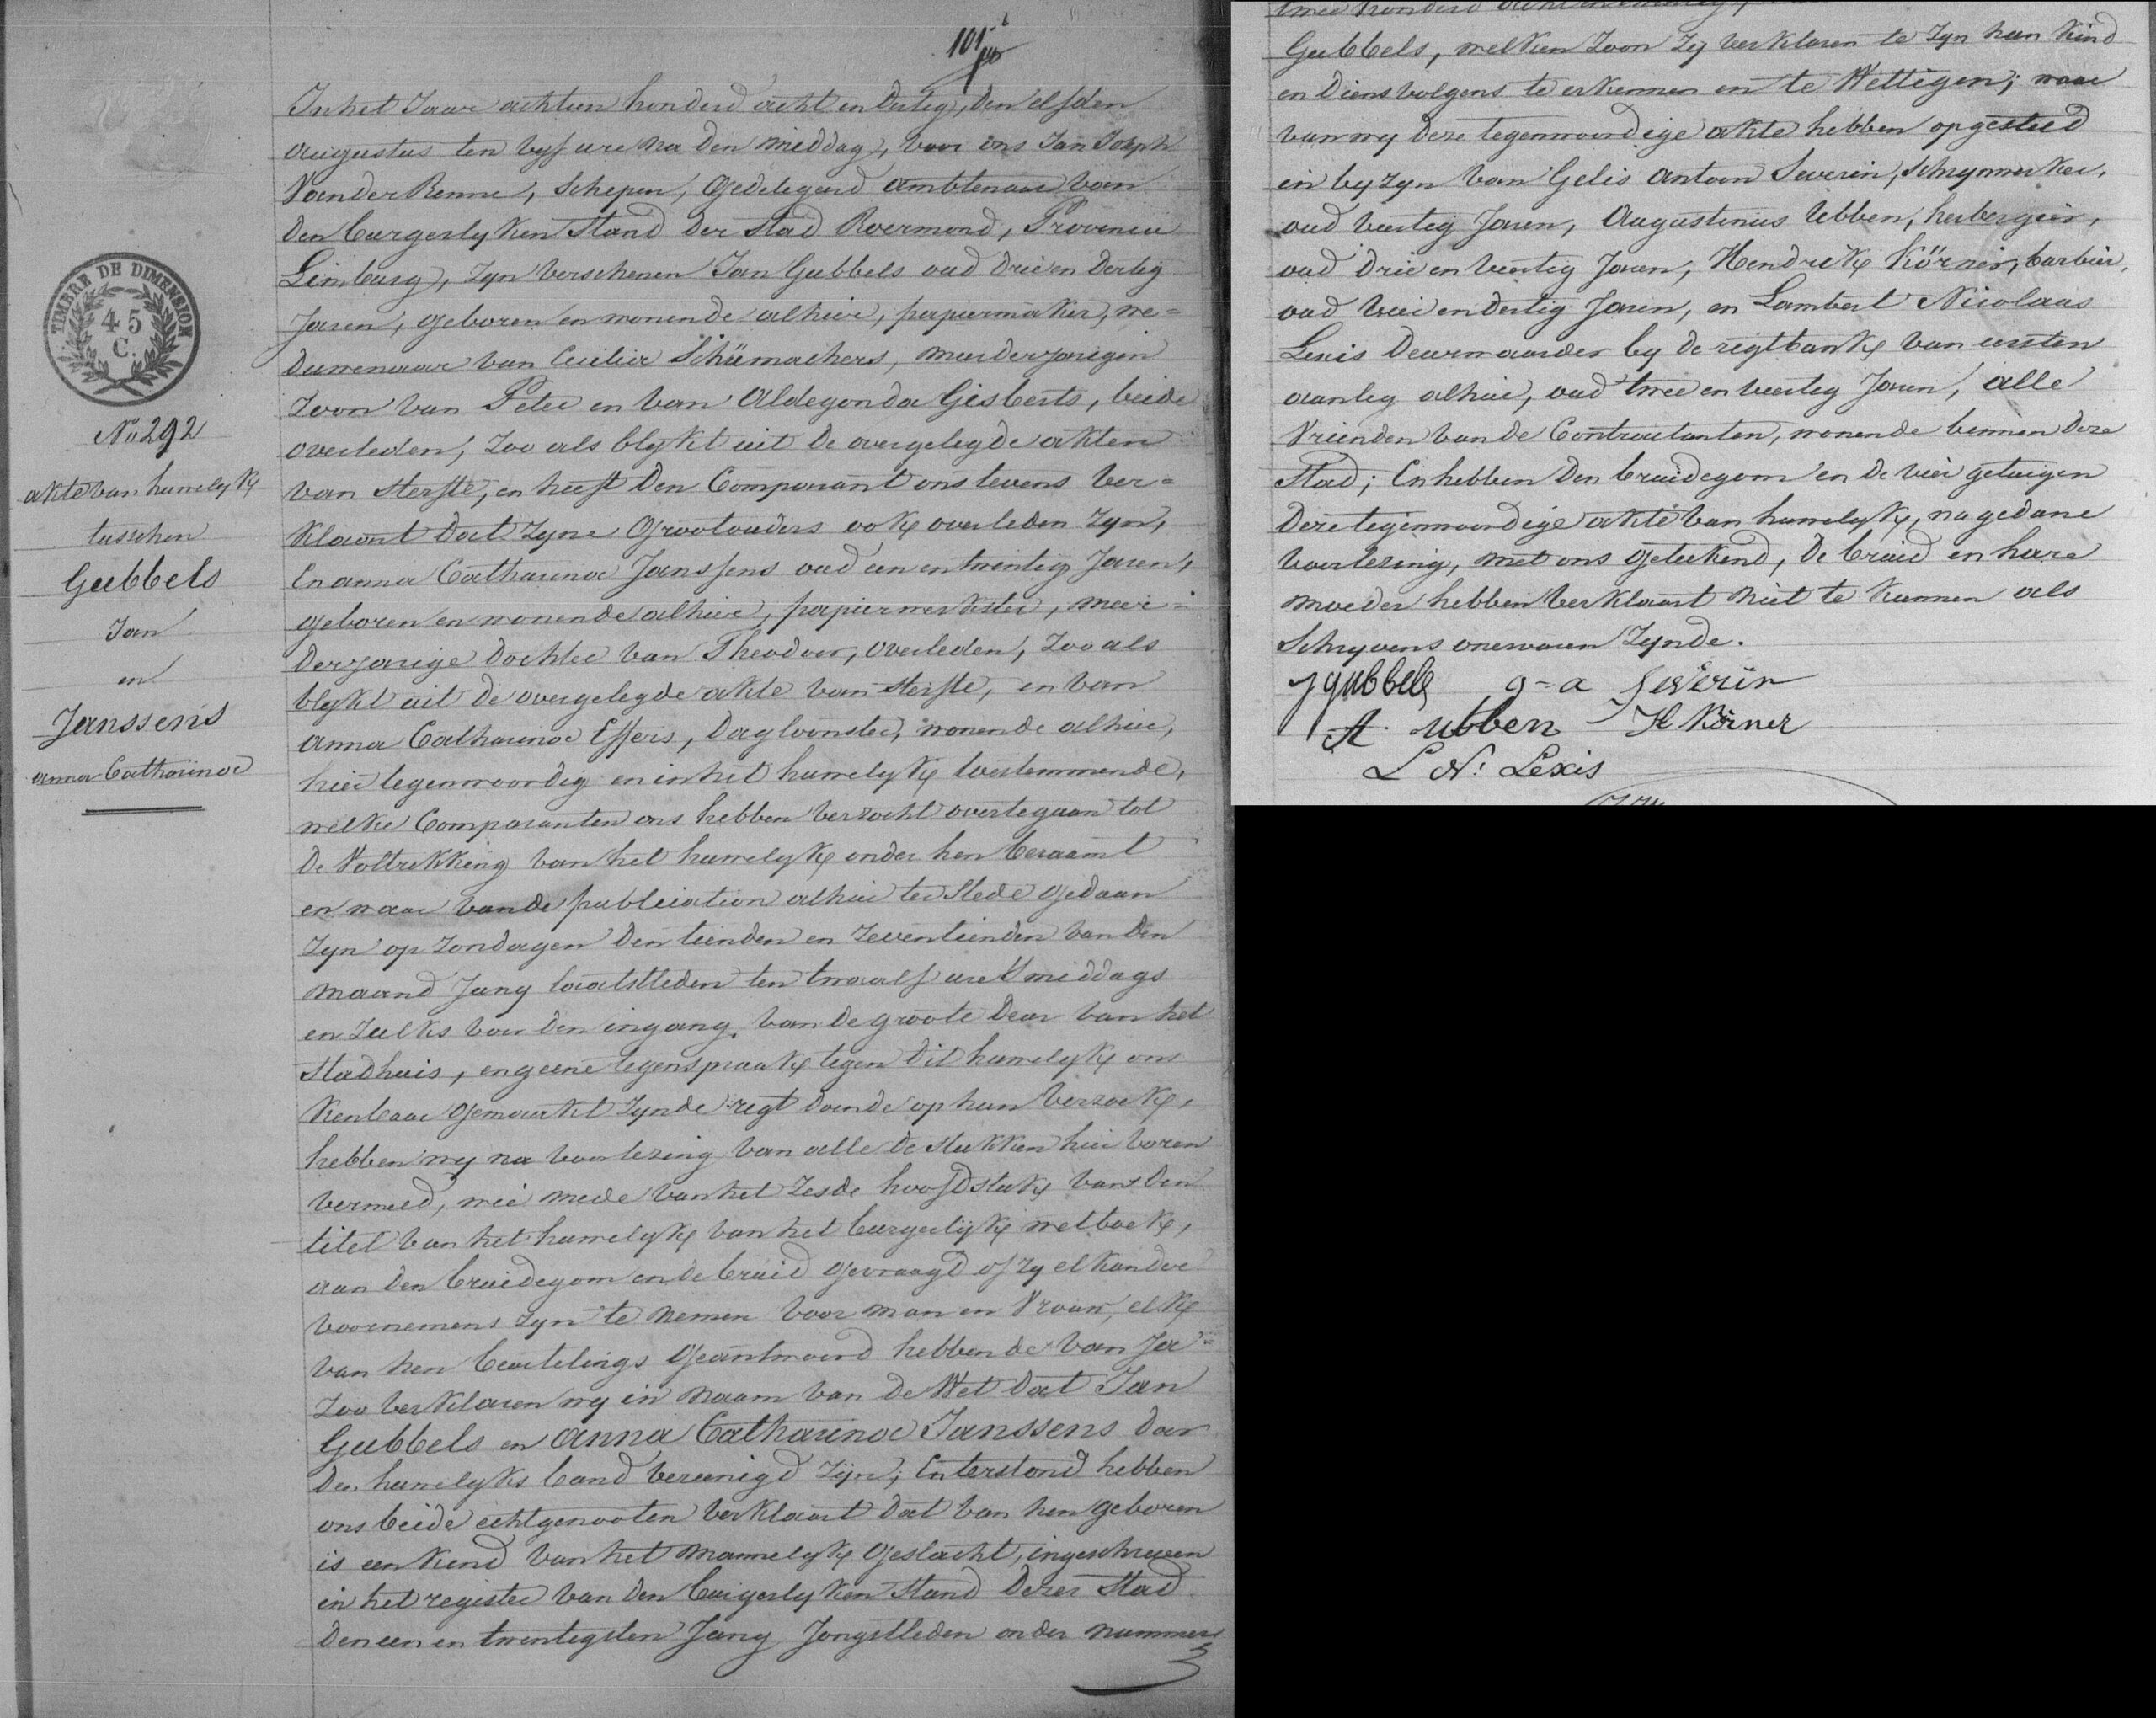 101
TIMBRE DE DIMENSION
45
C.
No 292
akte van huwelyk
tusschen
Gubbels
Jan
en
Janssens
anna Catharina
In het Jaar achtien honderd acht en dertig, den elfden
augustus ten vyf ure na den middag, voor ons Jan Joseph
Van der Renne, Schepen, gedelegeerd ambtenaar van
den burgerlyken Stand der stad Roermond, Provincie
Limburg, zyn verschenen Jan Gubbels oud drie en dertig
Jaren, geboren en wonende alhier, papiermaker, we=
duwenaar van Cecilia Schümachers, meerderjarigen
Zoon van Peter en van Aldegonda Gisberts, beide
overleden, zoo als blykt uit de overgelegde akten
van sterfte, en heeft den Comparant ons tevens ver=
klaart dat zyne Grootouders ook overleden zyn,
En anna Catharina Janssens oud een en twintig Jaren,
geboren en wonende alhier, papierwerkster, meer=
derjarige dochter van Theodoor, overleden, zoo als
blykt uit de overgelegde akte van sterfte, en van
anna Catharina Effers, dagloonster, wonende alhier,
hier tegenwoordig en in het huwelyk toestemmende,
welke Comparanten ons hebben verzocht overtegaan tot
de Voltrekking van het huwelyk onder hen beraamt
en waar van de publication alhier ter Stede gedaan
zyn op zondagen den tienden en zeventienden van den
maand Juny laatstleden ten twaalf ure smiddags
en zulks voor den ingang van de groote deur van het
Stadhuis, en geene tegenspraak tegen dit huwelyk ons
kenbaar gemaakt zynde regt doende op hun verzoek,
hebben wy na voorlezing van alle de stukken hier voren
vermeld, mee mede van het zesde hoofdstuk van den
titel van het huwelyk van het burgerlijk wetboek,
aan den bruidegom en de bruid gevraagd of zy elkander
voornemens zyn te nemen voor man en Vrouw, elk
van hen beurtelings geantwoord hebbende van Ja
zoo verklaren wy in naam van de Wet dat Jan
Gubbels en anna Catharina Janssens door
den huwelyks band vereenigd zijn; En terstond hebben
ons beide echtgenooten verklaart dat van hen geboren
is een kind van het mannelyk geslacht, ingeschreven
in het register van den burgerlyken Stand dezer Stad
den een en twintigsten Juny Jongstleden onder nummer
twee honderd
Gubbels, welken Zoon Zy verklaren te Zyn hun kind
en diensvolgens te erkennen en te Wettigen; waar
van wy deze tegenwoordige akte hebben opgesteld
in byzyn van Gelis Antoon Severin, Schrynwerker,
oud veertig Jaren, Augustinus Ubben, herbergier,
oud drie en veertig Jaren, Hendrik Körner, barbier,
oud twee en dertig Jaren, en Lambert Nicolaas
Lexis deurwaarder by de regtbank van eersten
aanleg alhier, oud twee en veertig Jaren, alle
Vrienden van de Contractanten, wonende binnen deze
Stad; En hebben den bruidegom en de vier getuigen
deze tegenwoordige akte van huwelyk, na gedane
voorlezing, met ons geteekend, de bruid en hare
moeder hebben verklaart niet te kunnen als
Schryvens onervaren Zynde.
J gubbels g-a Severin
A. ubben H Körner
L N: Lexis